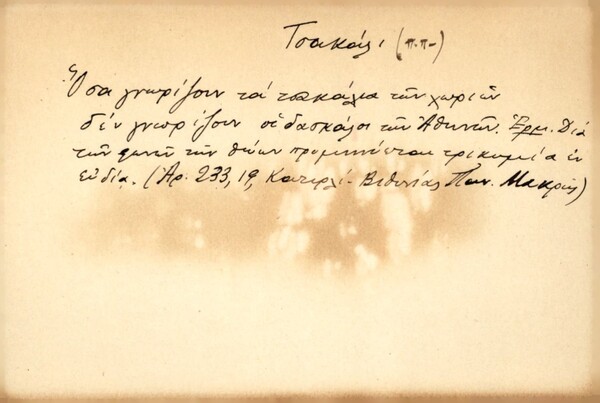 Τσακάλι (π.π-)
Ὅσα γνωρίζουν τά τσακάλια τῶν χωριῶν
δέν γνωρίζουν οἱ δασκάλοι τῶν Ἀθηνῶν. Ἑρμ. Διά
τῶν φωνῶν τῶν θώων προμηνύεται τρικυμία ἐν
εὐδίᾳ. (Ἀρ. 233, 19, Κατιρλί - Βιθυνίας Παν. Μακρῆς)